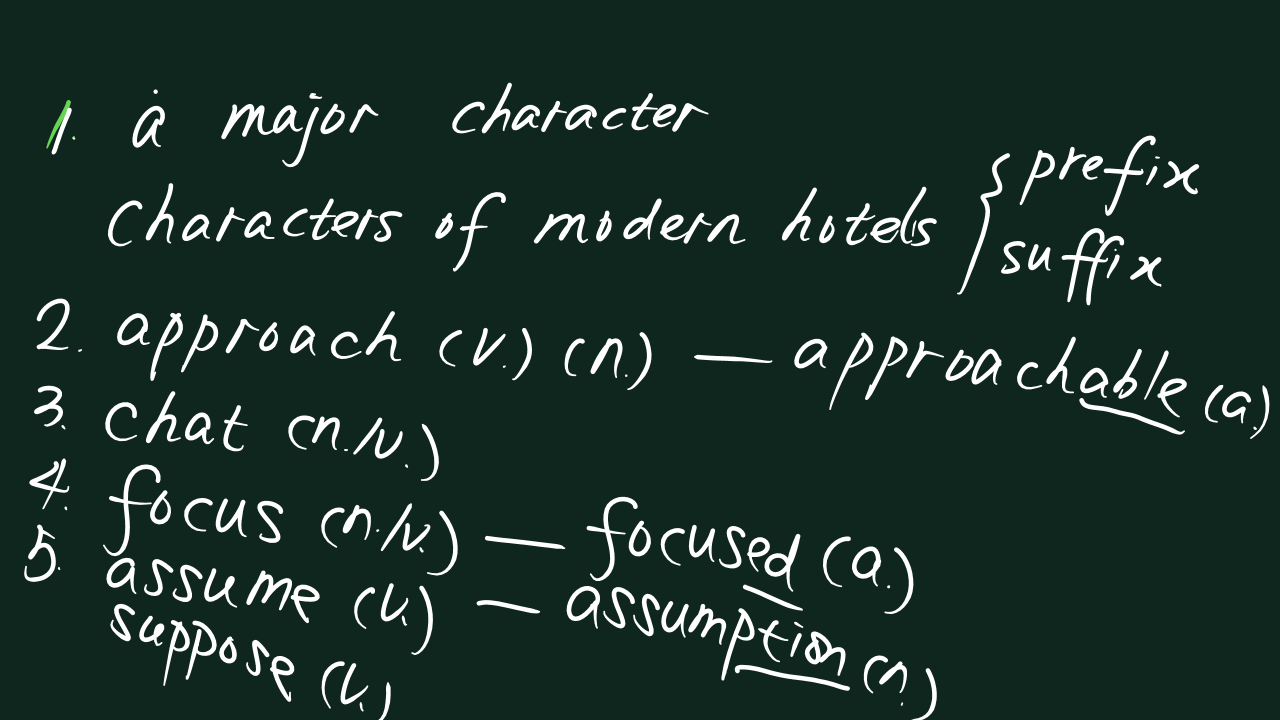 1. a major character
Characters of modern hotels { prefix
suffix
2. approach (v.) (n.) — approachable (a.)
3. chat (n./v.)
4. focus (n./v.) — focused (a.)
5. assume (v.) — assumption (n.)
suppose (v.)